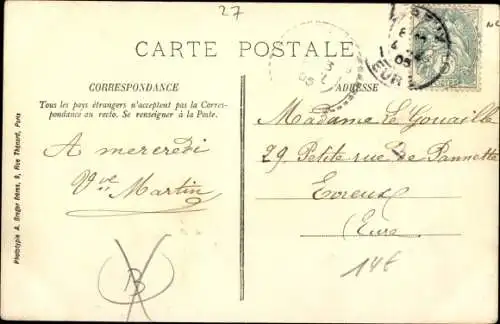 27
CARTE POSTALE
CORRESPONDANCE
Tous les pays étrangers n'acceptent pas la Corres-
pondance au recto. Se renseigner à la Poste.
A mercredi
Vve Martin
ADRESSE
Madame Le Gouaille
29 Petite rue de Pannette
Evreux
(Eure
14f
B
Phototypie A. Breger frères, 9, Rue Thénard, Paris